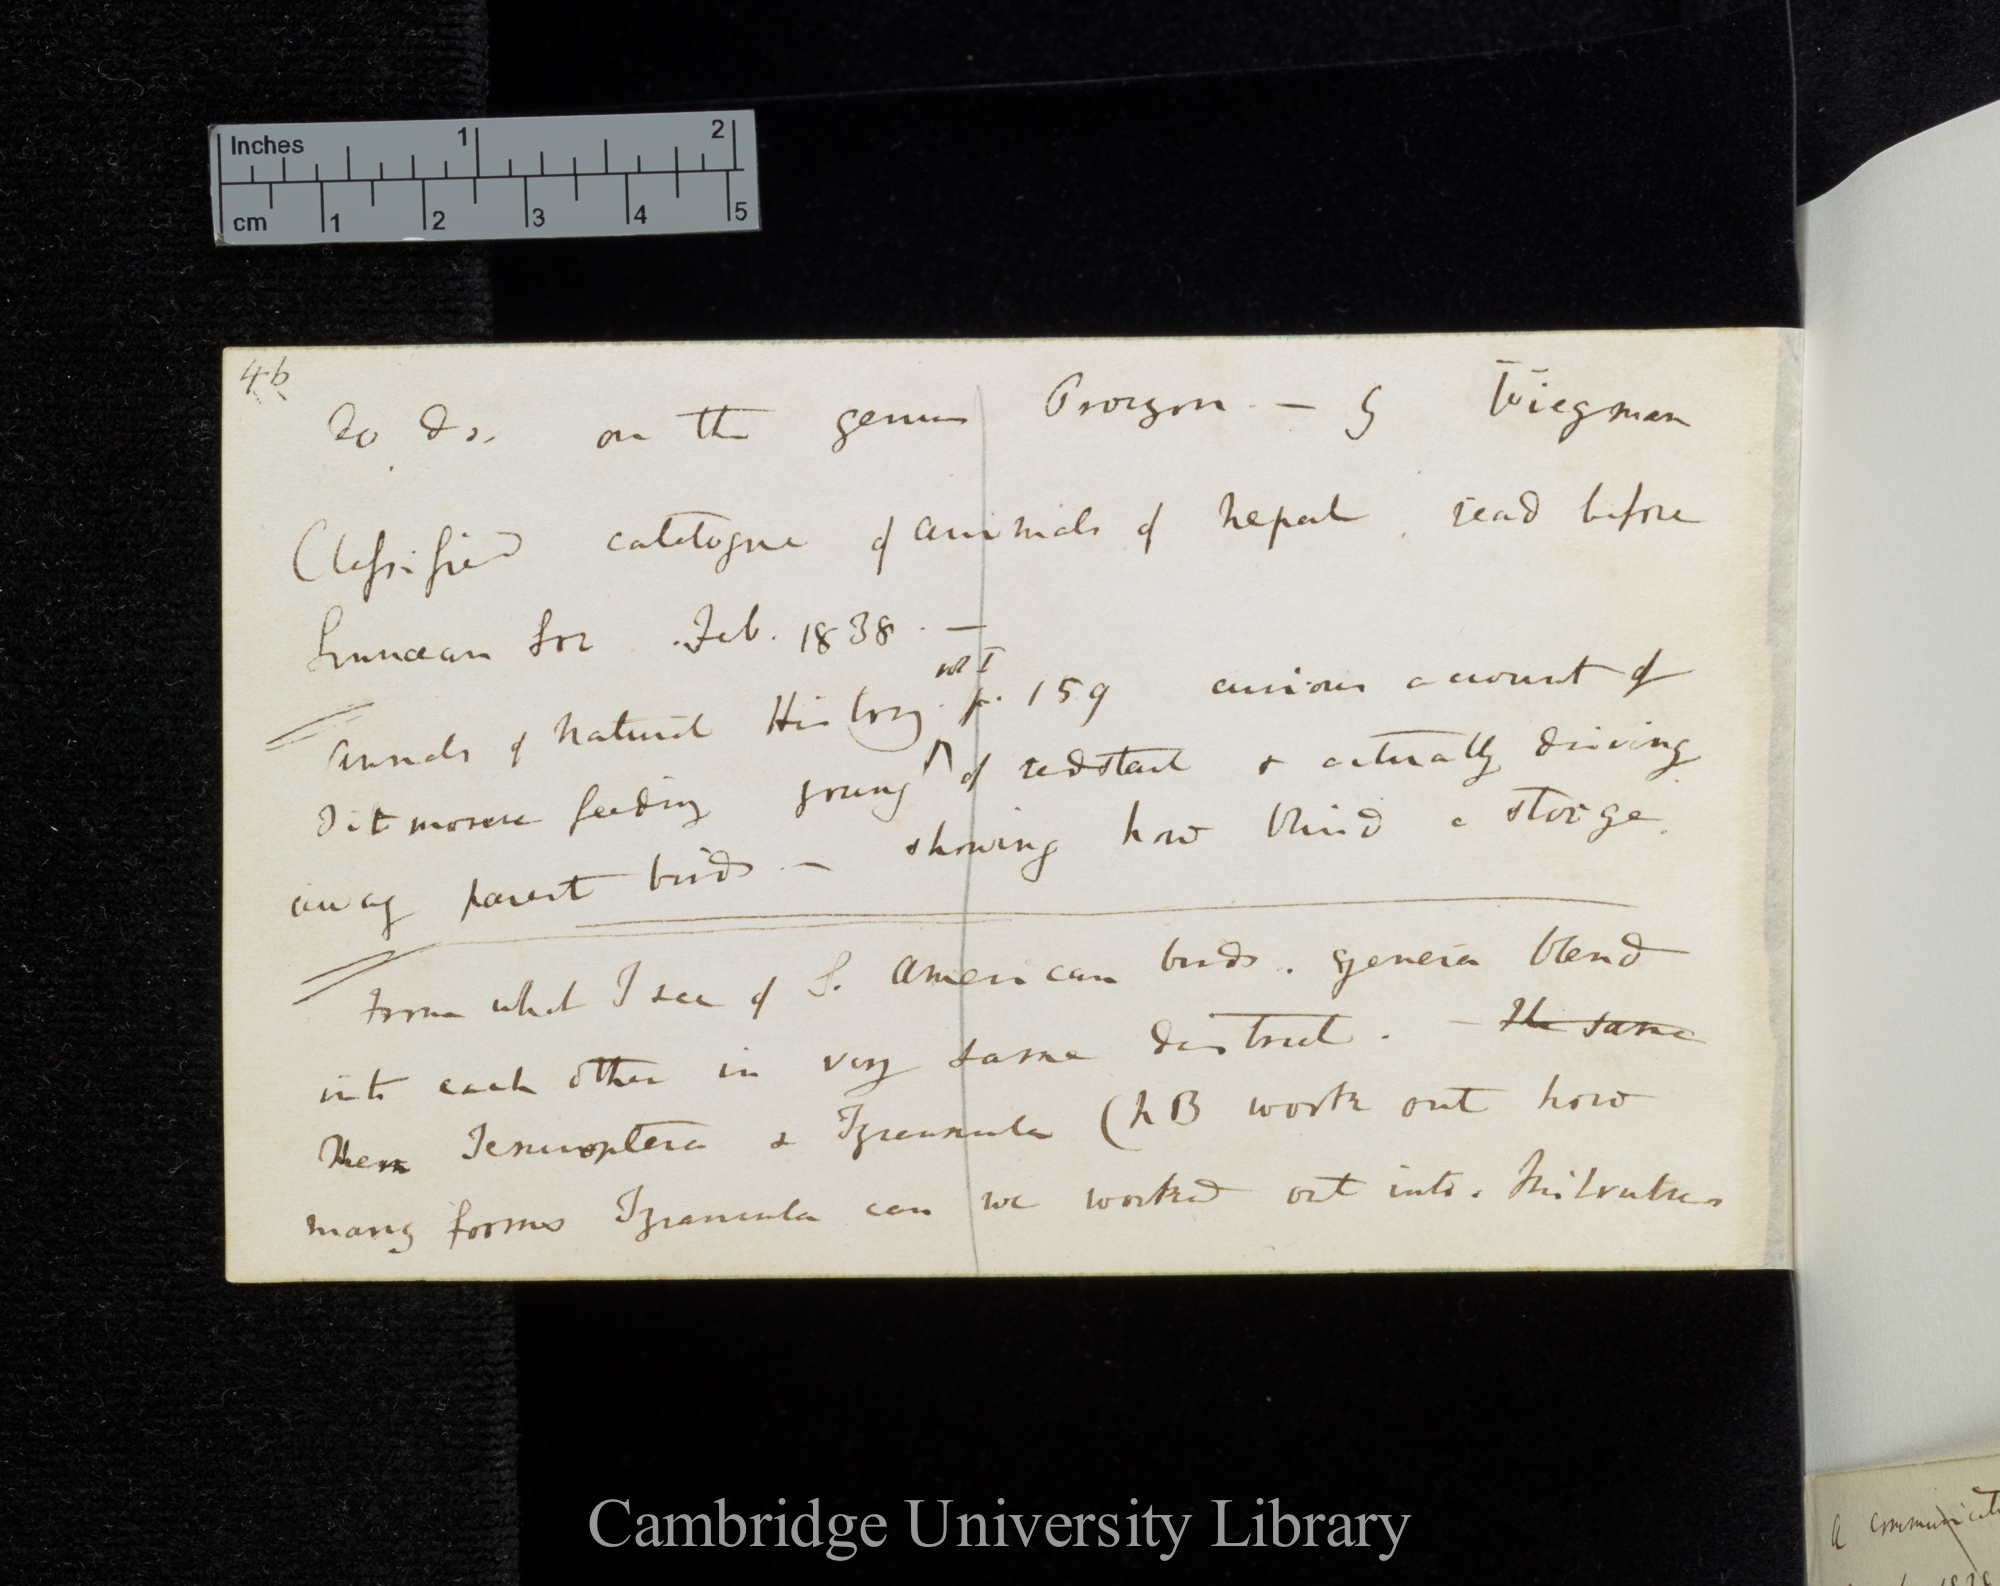 Inches 1 2
cm 1 2 3 4 5
46
do do. on the genus Procyon. — by Wiegman
Classified catalogue of animals of Nepal, read before
Linnaean Soc. Feb. 1838. —
vol I
Annals of Natural History. p. 159 curious account of
titmouse feeding young of redstart & actually driving
away parent birds. — showing how blind a storge.
From what I see of S. American birds. genera blend
into each other in very same district. — the same
Then & Tyrannula (NB work out how
many forms Tyrannula can we worked out into.
a
Cambridge University Library